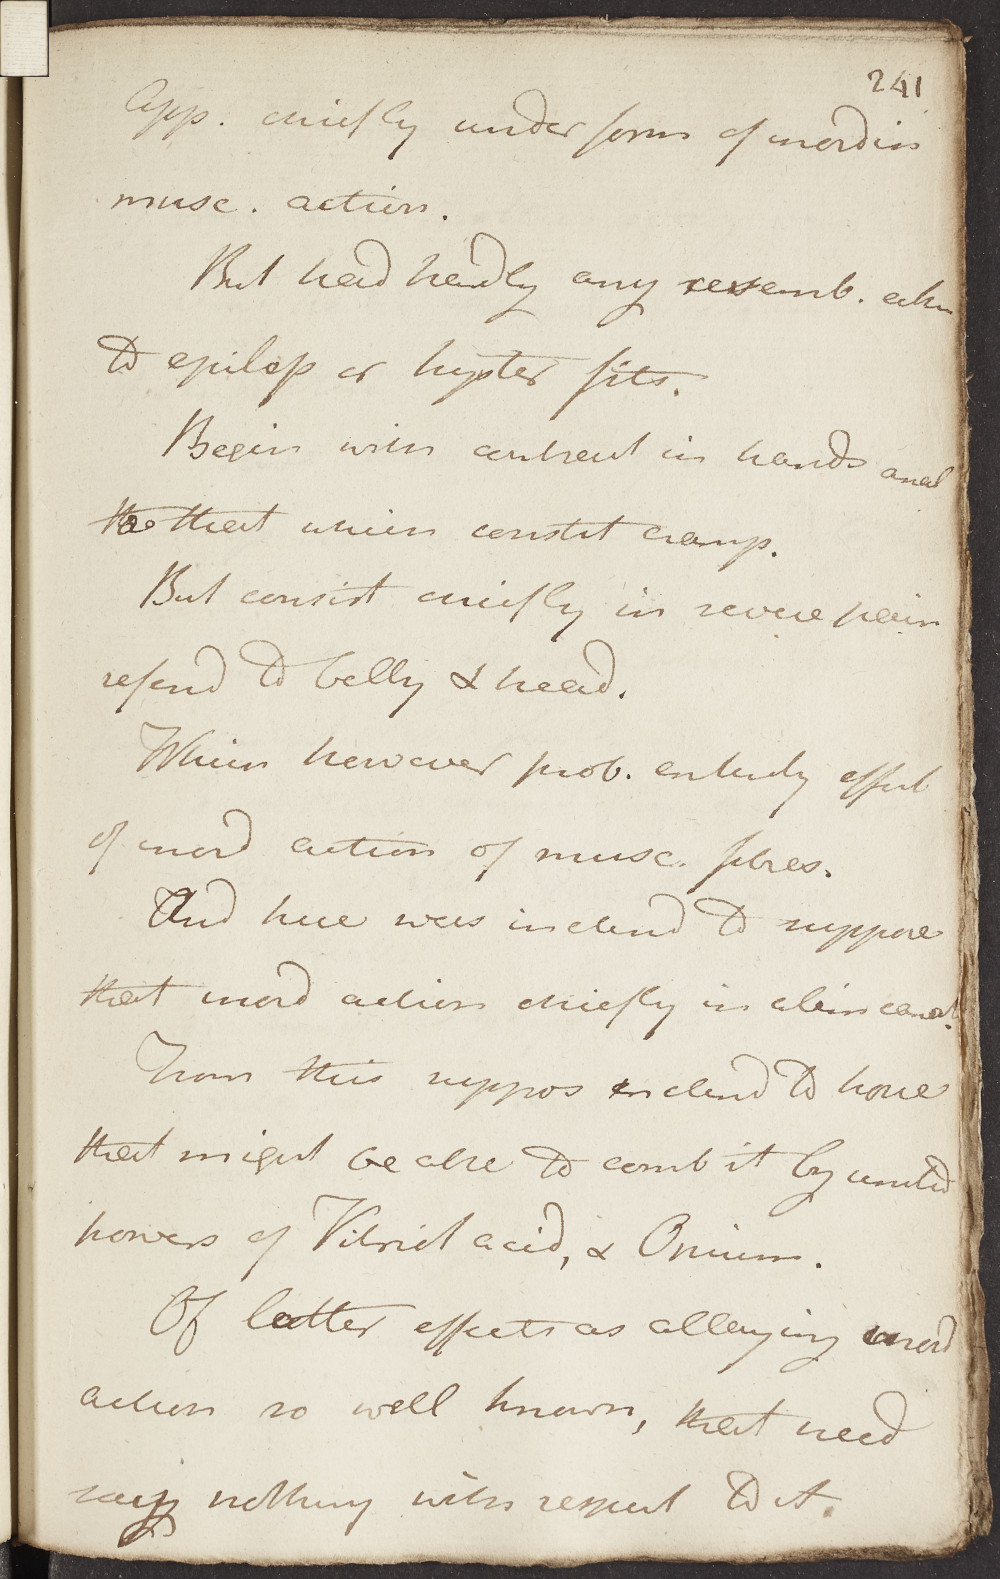 241
App. chiefly under form of inordin
musc. action.
But had hardly any resemb. either
to epilep or hyster fits.
Begin with contract in hands and
that which constit cramp.
But consist chiefly in severe pain
referd to belly & head.
Which however prob. entirely effect
of inord action of musc. fibres.
And here was inclind to suppose
that inord action chiefly in alim canal.
From this suppos inclind to hope
that might be able to comb it by united
powers of Vitriol acid, & Opium.
Of latter effects as allaying inord
action so well known, that need
say nothing with respect to it.